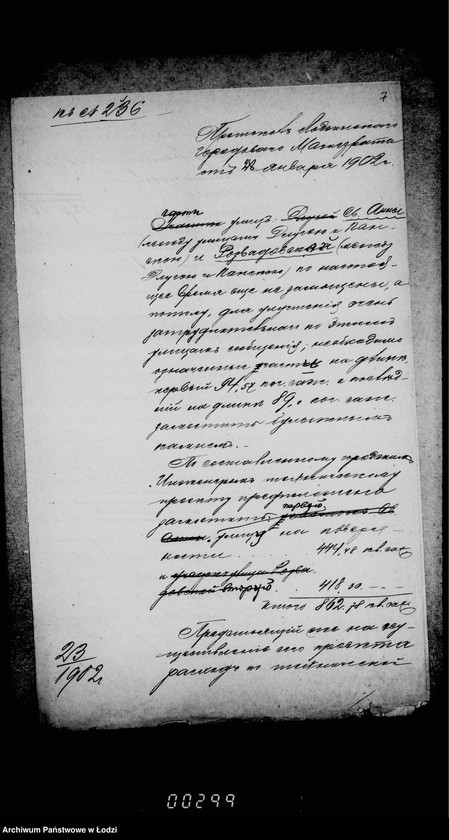 къ № 236
7
Протоколъ Лодзинскаго
Городоваго Магистрата
отъ января 1902 г.
части
улицъ: Св. Анны
(между улицами Длугою и Пан-
скою) и Розвадовской (между
Длугою и Панскою) по настоя-
щее время еще не замощены, а
потому, для улучшенія очень
затруднительнаго по этимъ
улицамъ сообщенія, необходимо
означенные участки на длинѣ
первый 94,57 пог. саж. а послѣд-
ній на длинѣ 89,0 пог. саж.
замостить булыжнымъ
камнемъ.
По составленному городскимъ
Инженеромъ техническому
проекту предположено
замостить первую
улицу на поверх-
ности . . . 444,48 кв. саж.
и второй . 418,30 - -
итого 862,78 кв. саж.
на осу-
ществленіе сего проекта
расходъ по технической
23
1902 г.
00299
Archiwum Państwowe w Łodzi